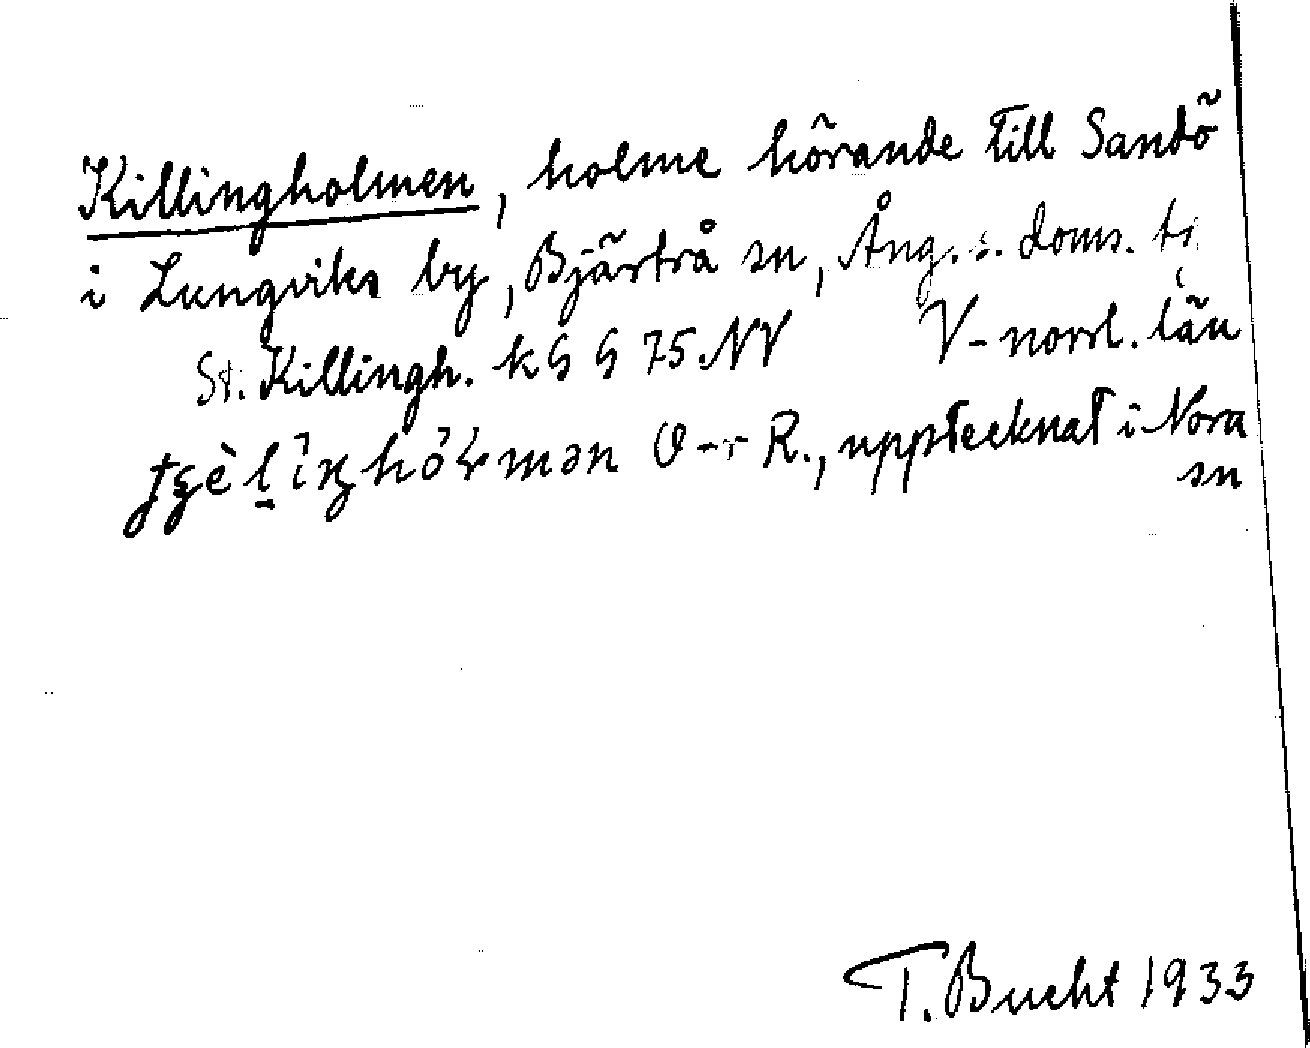 Killingholmen, holme hörande till Sandö
i Lungviks by, Bjärtrå sn, Ång. s. doms.
V-norrl. län
St. Killingh. k G G 75 NV
O-r R., upptecknat i Nora
sn
T. Bucht 1933